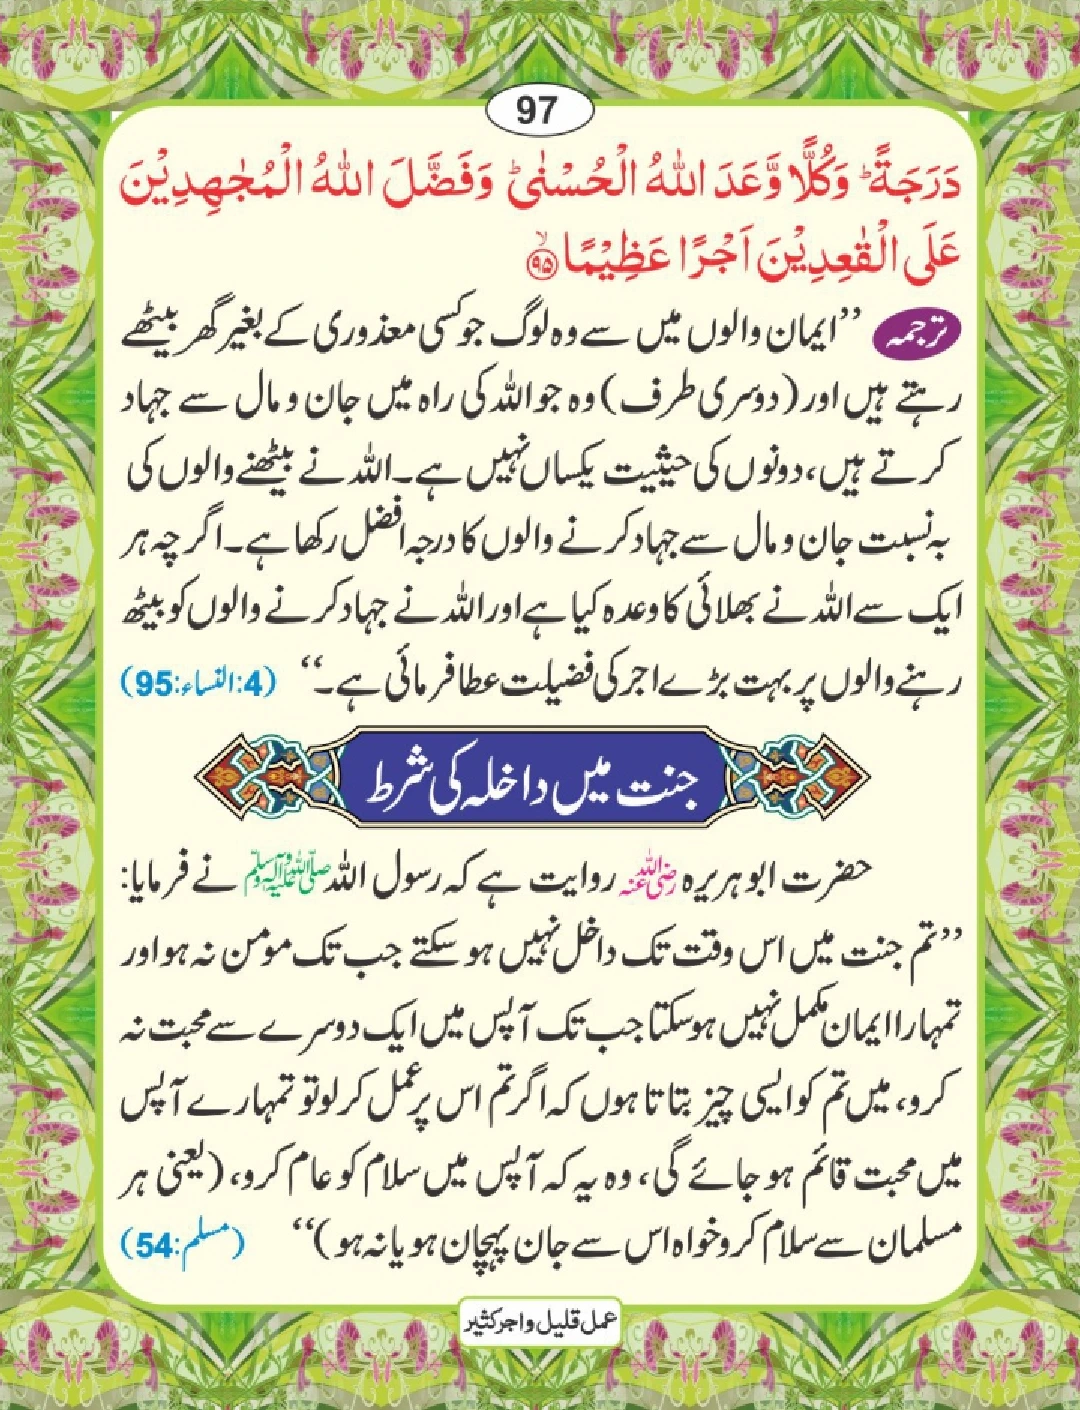 97
دَرَجَةً ؕ وَكُلًّا وَّعَدَ اللّٰهُ الْحُسْنٰى ؕ وَفَضَّلَ اللّٰهُ الْمُجٰهِدِيْنَ
عَلَى الْقٰعِدِيْنَ اَجْرًا عَظِيْمًا ۙ﴿۹۵﴾
ترجمہ ’’ایمان والوں میں سے وہ لوگ جو کسی معذوری کے بغیر گھر بیٹھے
رہتے ہیں اور (دوسری طرف) وہ جو اللہ کی راہ میں جان و مال سے جہاد
کرتے ہیں، دونوں کی حیثیت یکساں نہیں ہے۔ اللہ نے بیٹھنے والوں کی
بہ نسبت جان و مال سے جہاد کرنے والوں کا درجہ افضل رکھا ہے۔ اگرچہ ہر
ایک سے اللہ نے بھلائی کا وعدہ کیا ہے اور اللہ نے جہاد کرنے والوں کو بیٹھ
رہنے والوں پر بہت بڑے اجر کی فضیلت عطا فرمائی ہے۔‘‘ (4:النساء:95)
جنت میں داخلہ کی شرط
حضرت ابو ہریرہ رضی اللہ عنہ روایت ہے کہ رسول اللہ صلی اللہ علیہ وسلم نے فرمایا:
’’تم جنت میں اس وقت تک داخل نہیں ہو سکتے جب تک مؤمن نہ ہو اور
تمہارا ایمان مکمل نہیں ہو سکتا جب تک آپس میں ایک دوسرے سے محبت نہ
کرو، میں تم کو ایسی چیز بتاتا ہوں کہ اگر تم اس پر عمل کر لو تو تمہارے آپس
میں محبت قائم ہو جائے گی، وہ یہ کہ آپس میں سلام کو عام کرو، (یعنی ہر
مسلمان سے سلام کرو خواہ اس سے جان پہچان ہو یا نہ ہو)‘‘ (مسلم:54)
عمل قلیل و اجر کثیر